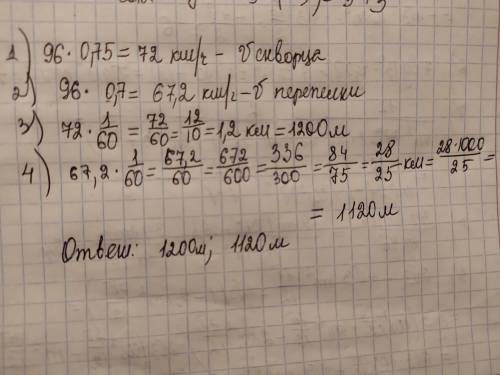 1) 96 · 0,75 = 72 км/ч - V скворца
2) 96 · 0,7 = 67,2 км/ч - V перепелки
3) 72 · 1/60 = 72/60 = 12/10 = 1,2 км = 1200 м
4) 67,2 · 1/60 = 67,2/60 = 672/600 = 336/300 = 84/75 = 28/25 км = 28·1000/25 =
= 1120 м
Ответ: 1200 м; 1120 м